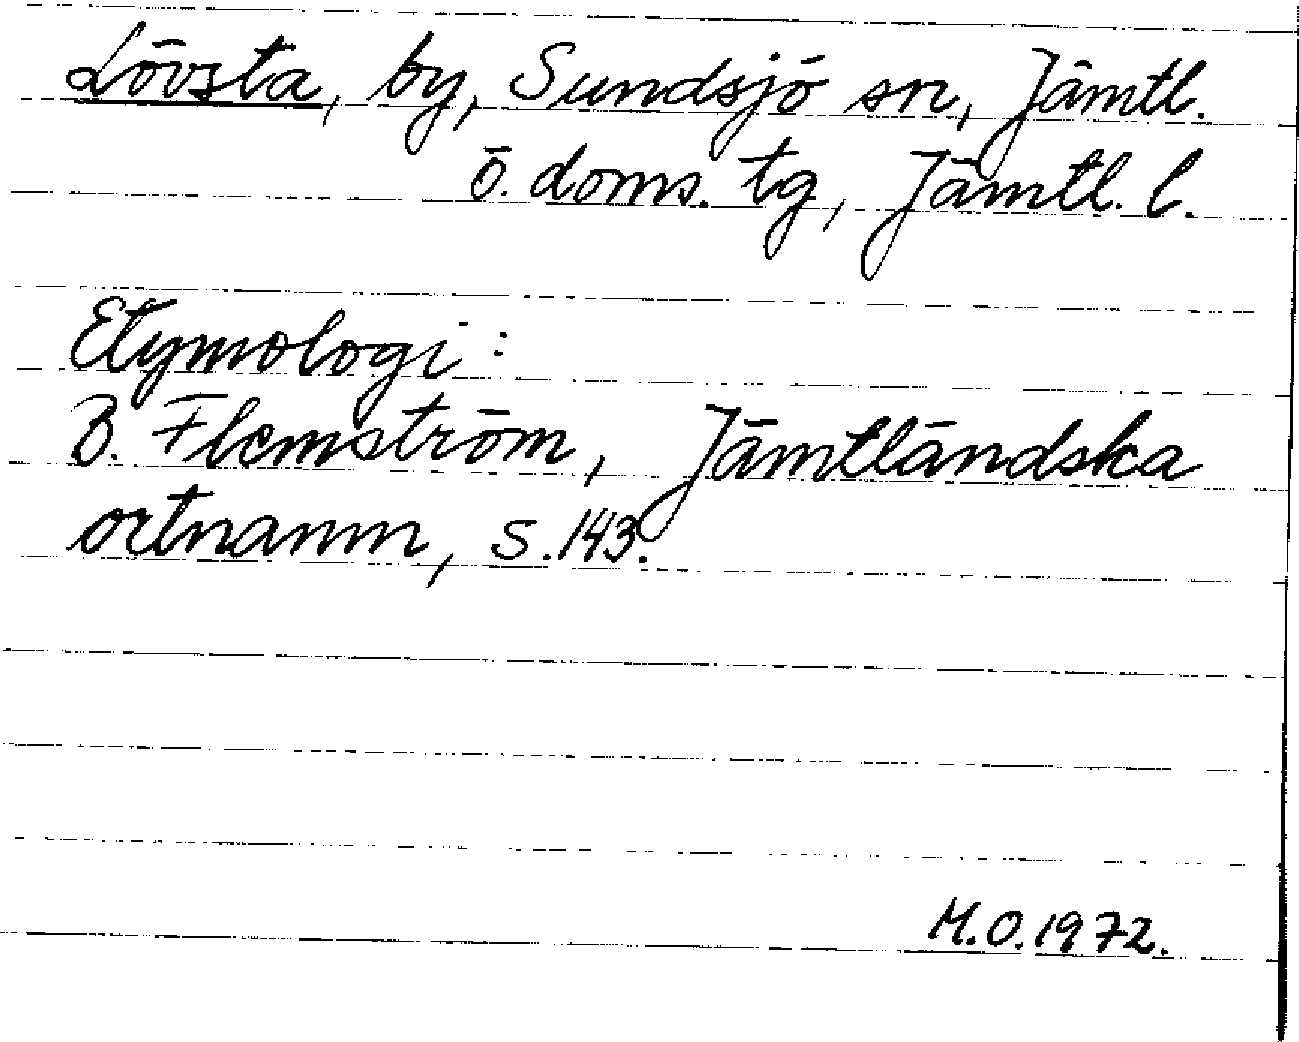 Lövsta, by, Sundsjö sn, Jämtl.
ö. doms. tg, Jämtl. l.
Etymologi:
B. Flemström, Jämtländska
ortnamn, s. 143.
M.O. 1972.